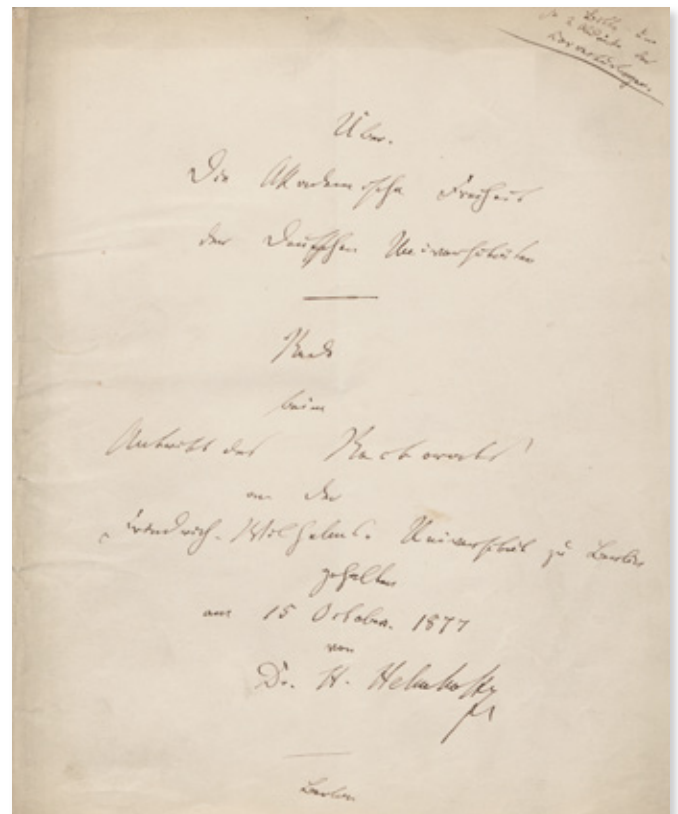 Über.
Die Akademische Freiheit
der Deutschen Universitäten
Rede
beim
Antritt des Rectorats
an der
Friedrich-Wilhelms-Universität zu Berlin
gehalten
am 15 October 1877
von
Dr. H. Helmholtz
Berlin